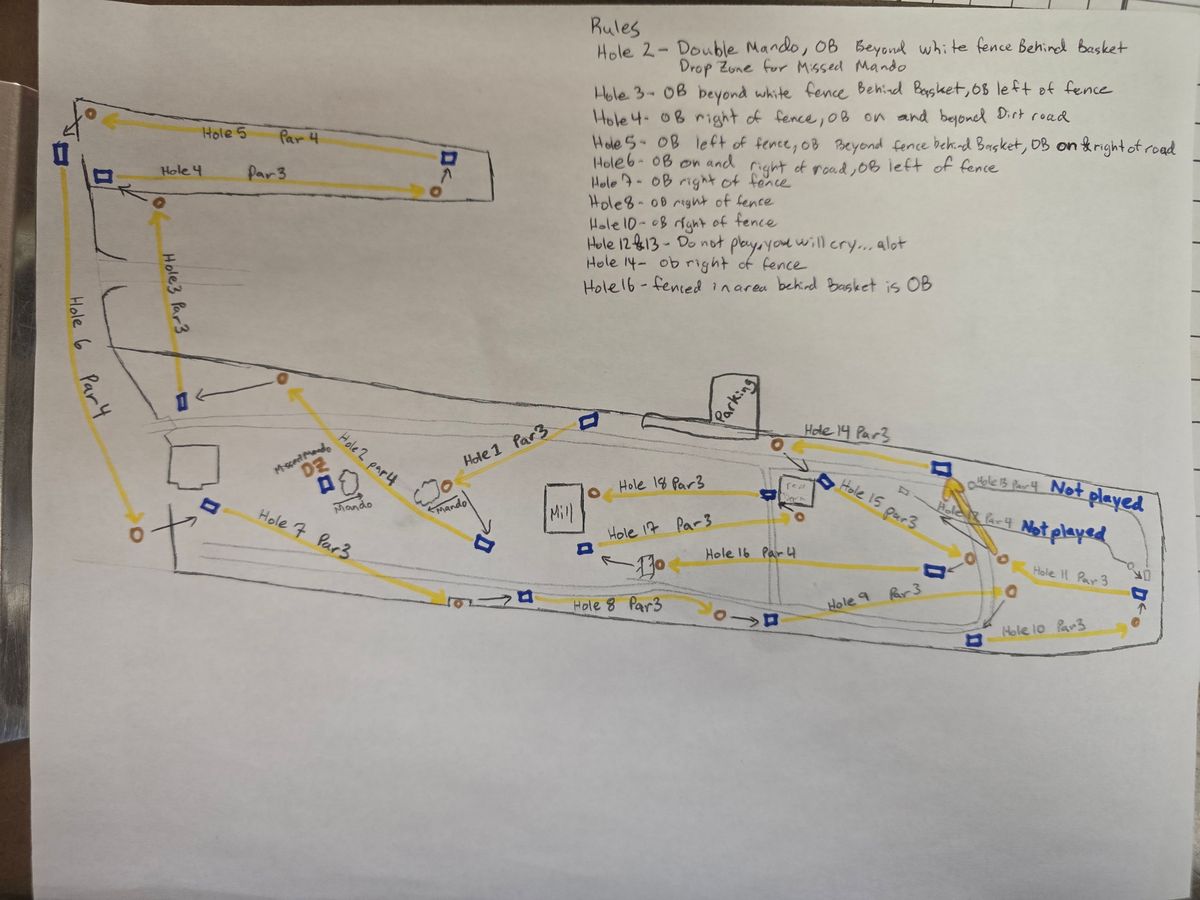 Rules
Hole 2 - Double Mando, OB Beyond white fence Behind Basket
Drop Zone for Missed Mando
Hole 3 - OB beyond white fence Behind Basket, OB left of fence
Hole 4 - OB right of fence, OB on and beyond Dirt road
Hole 5 - OB left of fence, OB Beyond fence behind Basket, OB on & right of road
Hole 6 - OB on and right of road, OB left of fence
Hole 7 - OB right of fence
Hole 8 - OB right of fence
Hole 10 - OB right of fence
Hole 12 & 13 - Do not play, you will cry... alot
Hole 14 - ob right of fence
Hole 16 - fenced in area behind Basket is OB
Hole 5 Par 4
Hole 4 Par 3
Hole 3 Par 3
Hole 6 Par 4
Parking
Hole 1 Par 3
Hole 2 par 4
Missed Mando
DZ
Mando
Mando
Hole 14 Par 3
Hole 13 Par 4 Not played
Hole 15 Par 3
Hole 18 Par 3
Mill
Hole 12 Par 4 Not played
Hole 17 Par 3
Hole 7 Par 3
Hole 16 Par 4
Hole 11 Par 3
Hole 8 Par 3
Hole 9 Par 3
Hole 10 Par 3